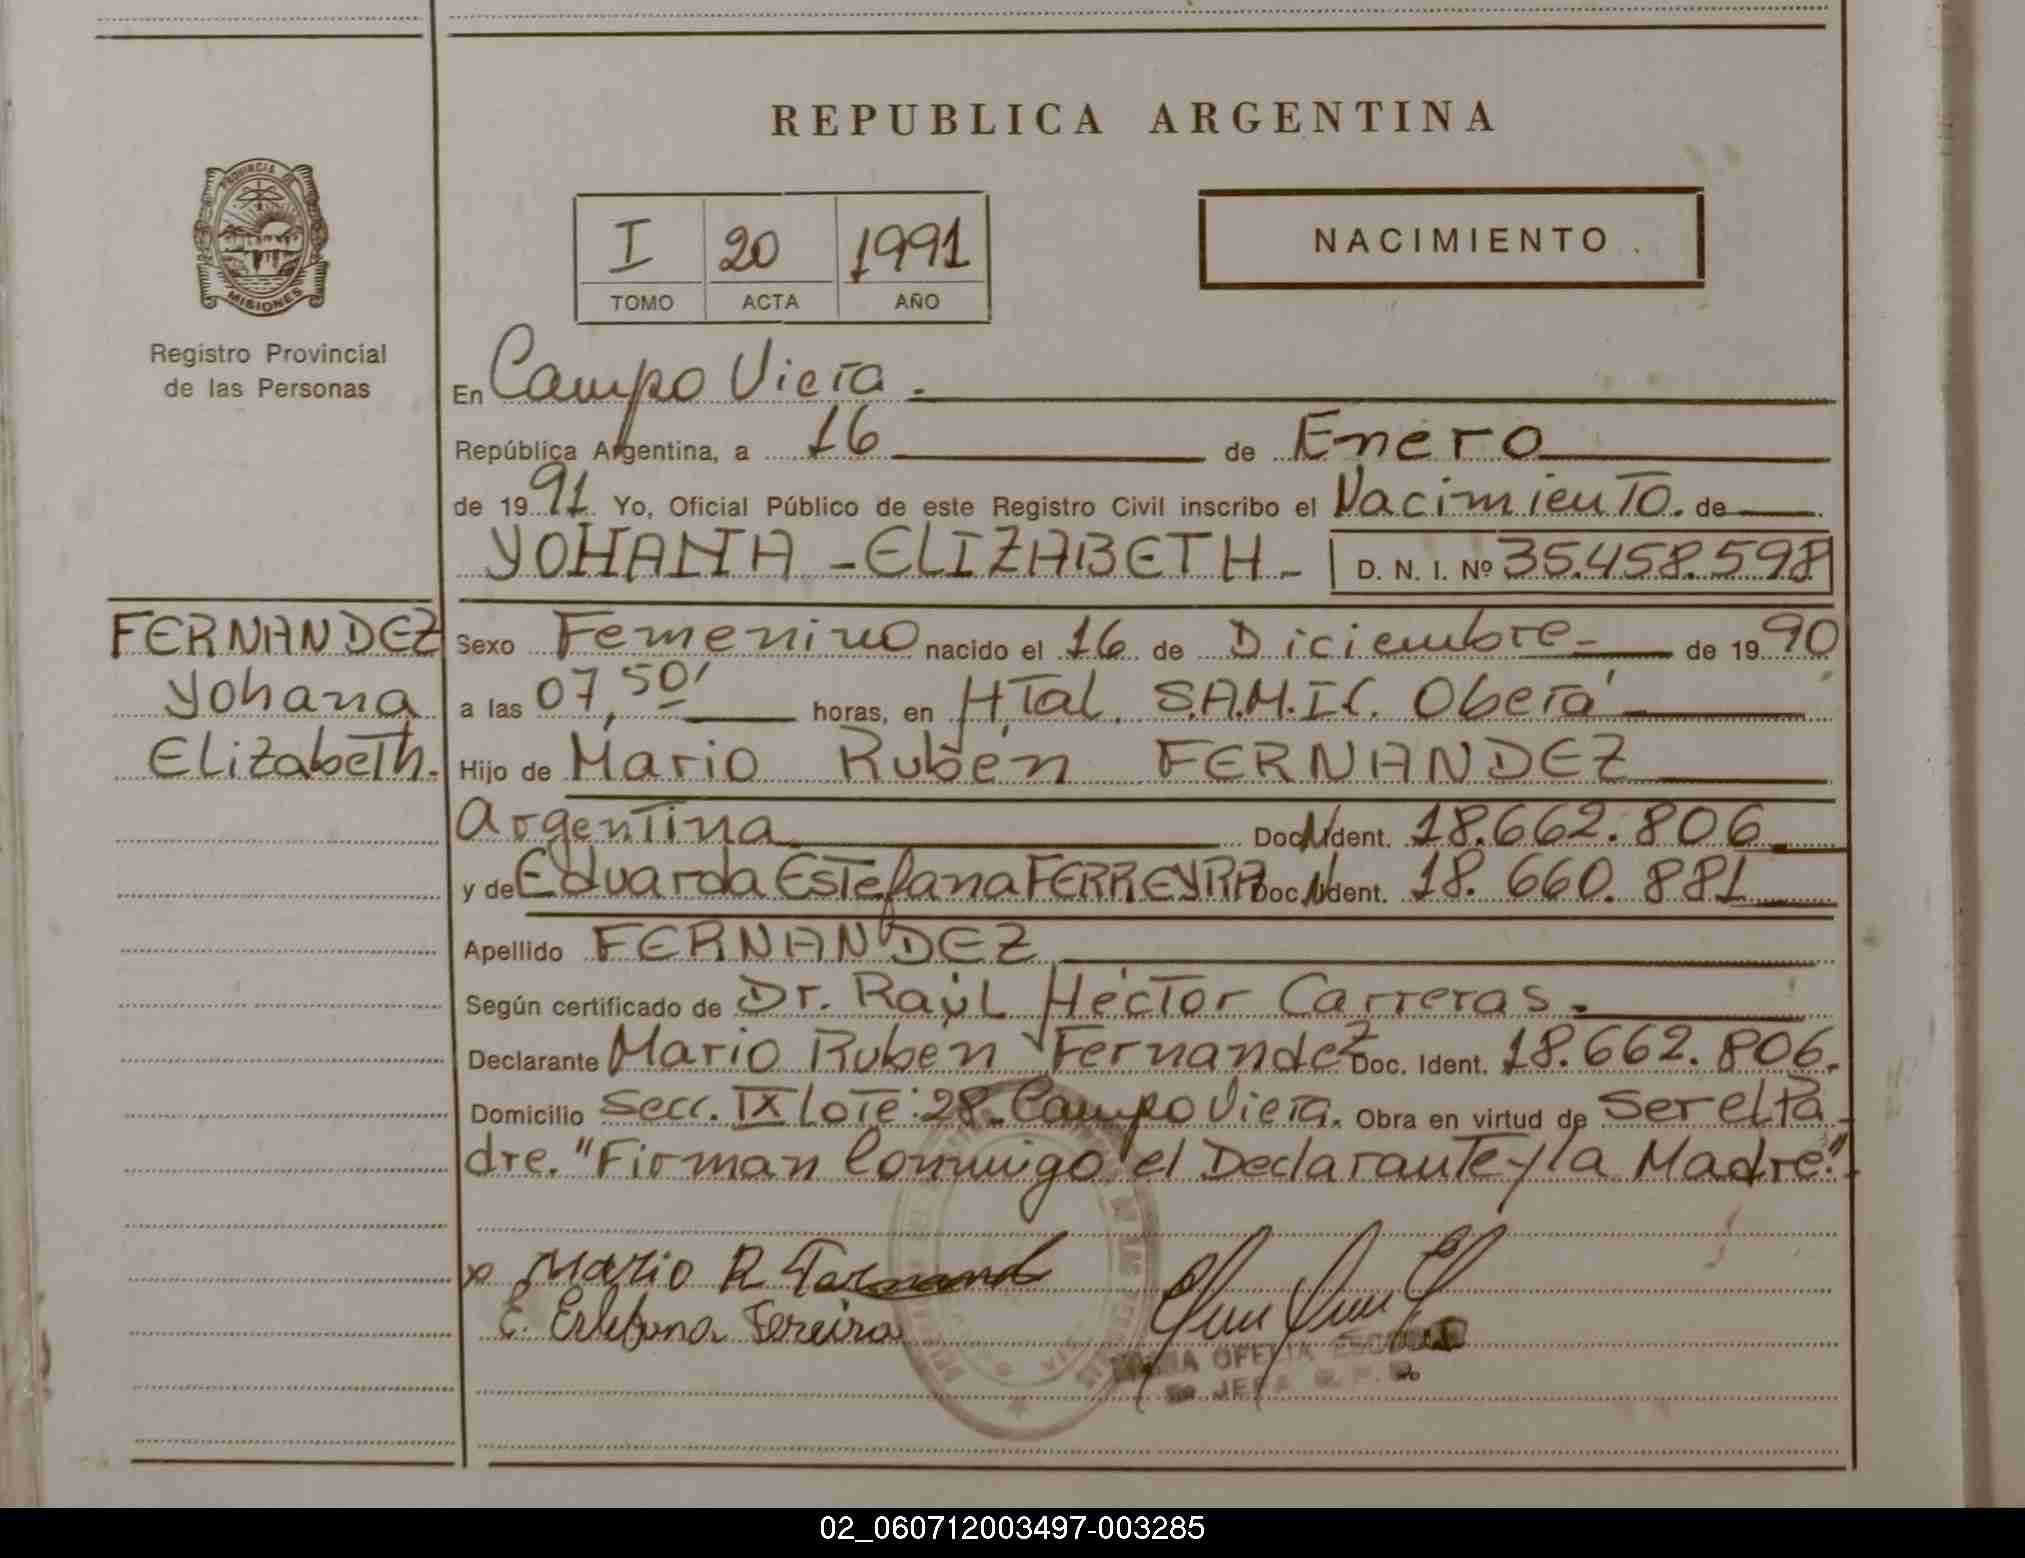 REPUBLICA ARGENTINA
PROVINCIA DE
MISIONES
Registro Provincial
de las Personas
I 20 1991
TOMO ACTA AÑO
NACIMIENTO
En Campo Viera.
República Argentina, a 16 de Enero
de 1991 Yo, Oficial Público de este Registro Civil inscribo el Nacimiento. de
YOHANA - ELIZABETH - D. N. I. Nº 35.458.598
FERNANDEZ
Yohana
Elizabeth.
Sexo Femenino nacido el 16 de Diciembre - de 1990
a las 07,50' horas, en HTal. S.A.M.I.C. Oberá
Hijo de Mario Rubén FERNANDEZ
Argentina Doc. Ident. 18.662.806
y de Eduarda Estefana FERREYRA Doc. Ident. 18.660.881
Apellido FERNANDEZ
Según certificado de Dr. Raúl Héctor Carreras.
Declarante Mario Ruben Fernandez Doc. Ident. 18.662.806.
Domicilio Secc. IX Lote: 28 - Campo Viera. Obra en virtud de ser el Pa-
dre. "Firman Conmigo el Declarante y la Madre".
x Mario R
E. Estefana Fereira
OFELIA
JEFA R. P.
02_060712003497-003285